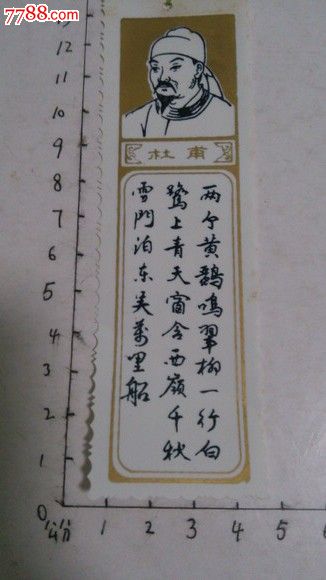 7788.com
中国收藏热线
杜甫
两个黄鹂鸣翠柳一行白
鷺上青天窗含西嶺千秋
雪門泊东吴萬里船
12
11
10
9
8
7
6
5
4
3
2
1
0公分
1 2 3 4 5